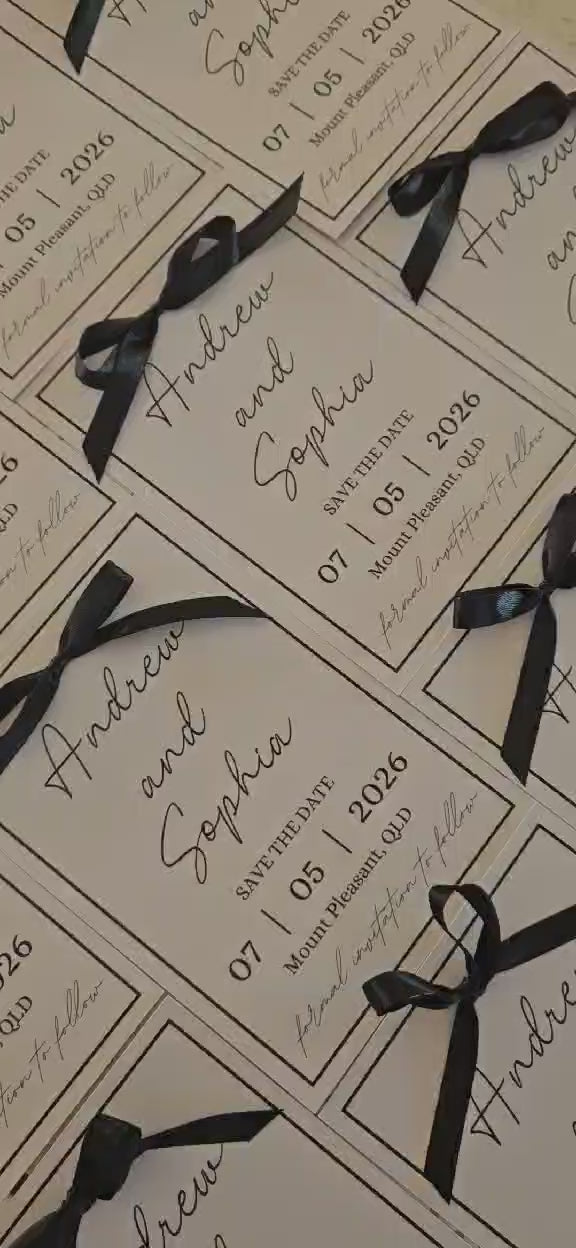 Soph
SAVE THE DATE
07 | 05 | 2026
Mount Pleasant, QLD
formal invitation to follow
HE DATE
05 | 2026
Mount Pleasant, QLD
formal invitation to follow
Andrew
an
Andrew
and
Sophia
SAVE THE DATE
07 | 05 | 2026
Mount Pleasant, QLD
formal invitation to follow
QLD
on to follow
Andrew
and
Sophia
SAVE THE DATE
07 | 05 | 2026
Mount Pleasant, QLD
formal invitation to follow
026
QLD
tation to follow
Andre
drew